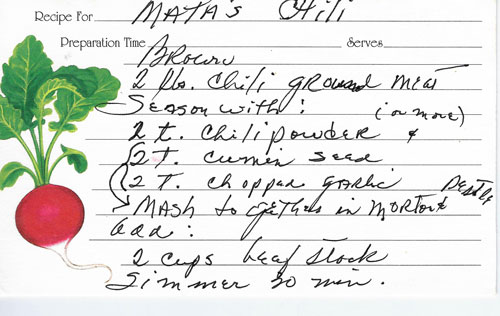 Recipe For MAJA'S Chili
Preparation Time Serves
Brown
2 lbs. Chili ground meat
Season with:
(or more)
2 t. chili powder &
2 t. cumin seed
2 T. chopped garlic
MASH together in MORTAR & Pestle
add:
2 cups beef stock
Simmer 30 min.